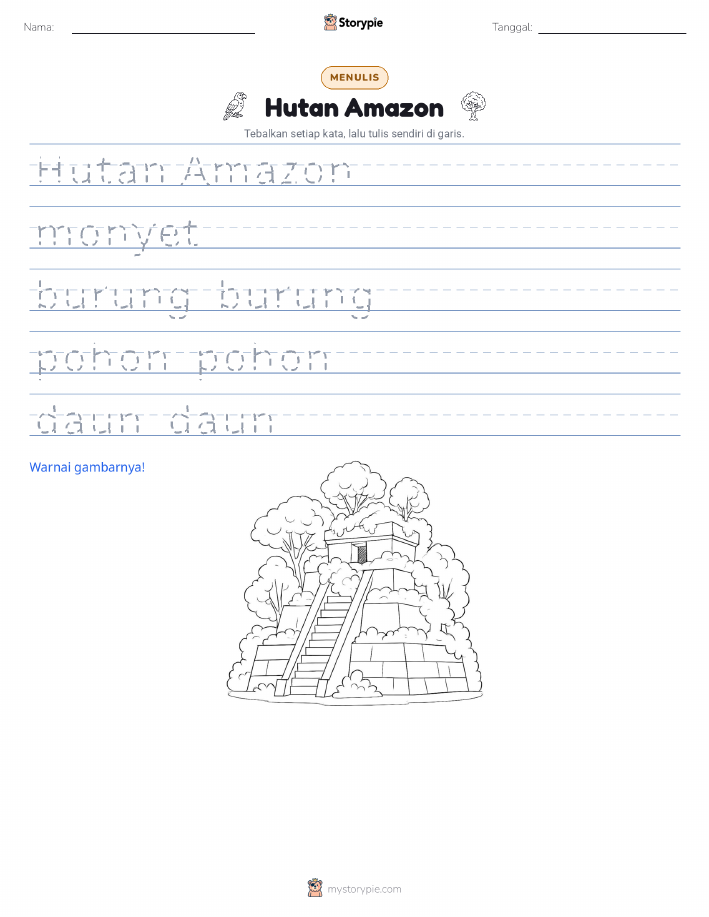 Nama:
Storypie
Tanggal:
MENULIS
Hutan Amazon
Tebalkan setiap kata, lalu tulis sendiri di garis.
Hutan Amazon
monyet
burung burung
pohon pohon
daun daun
Warnai gambarnya!
mystorypie.com